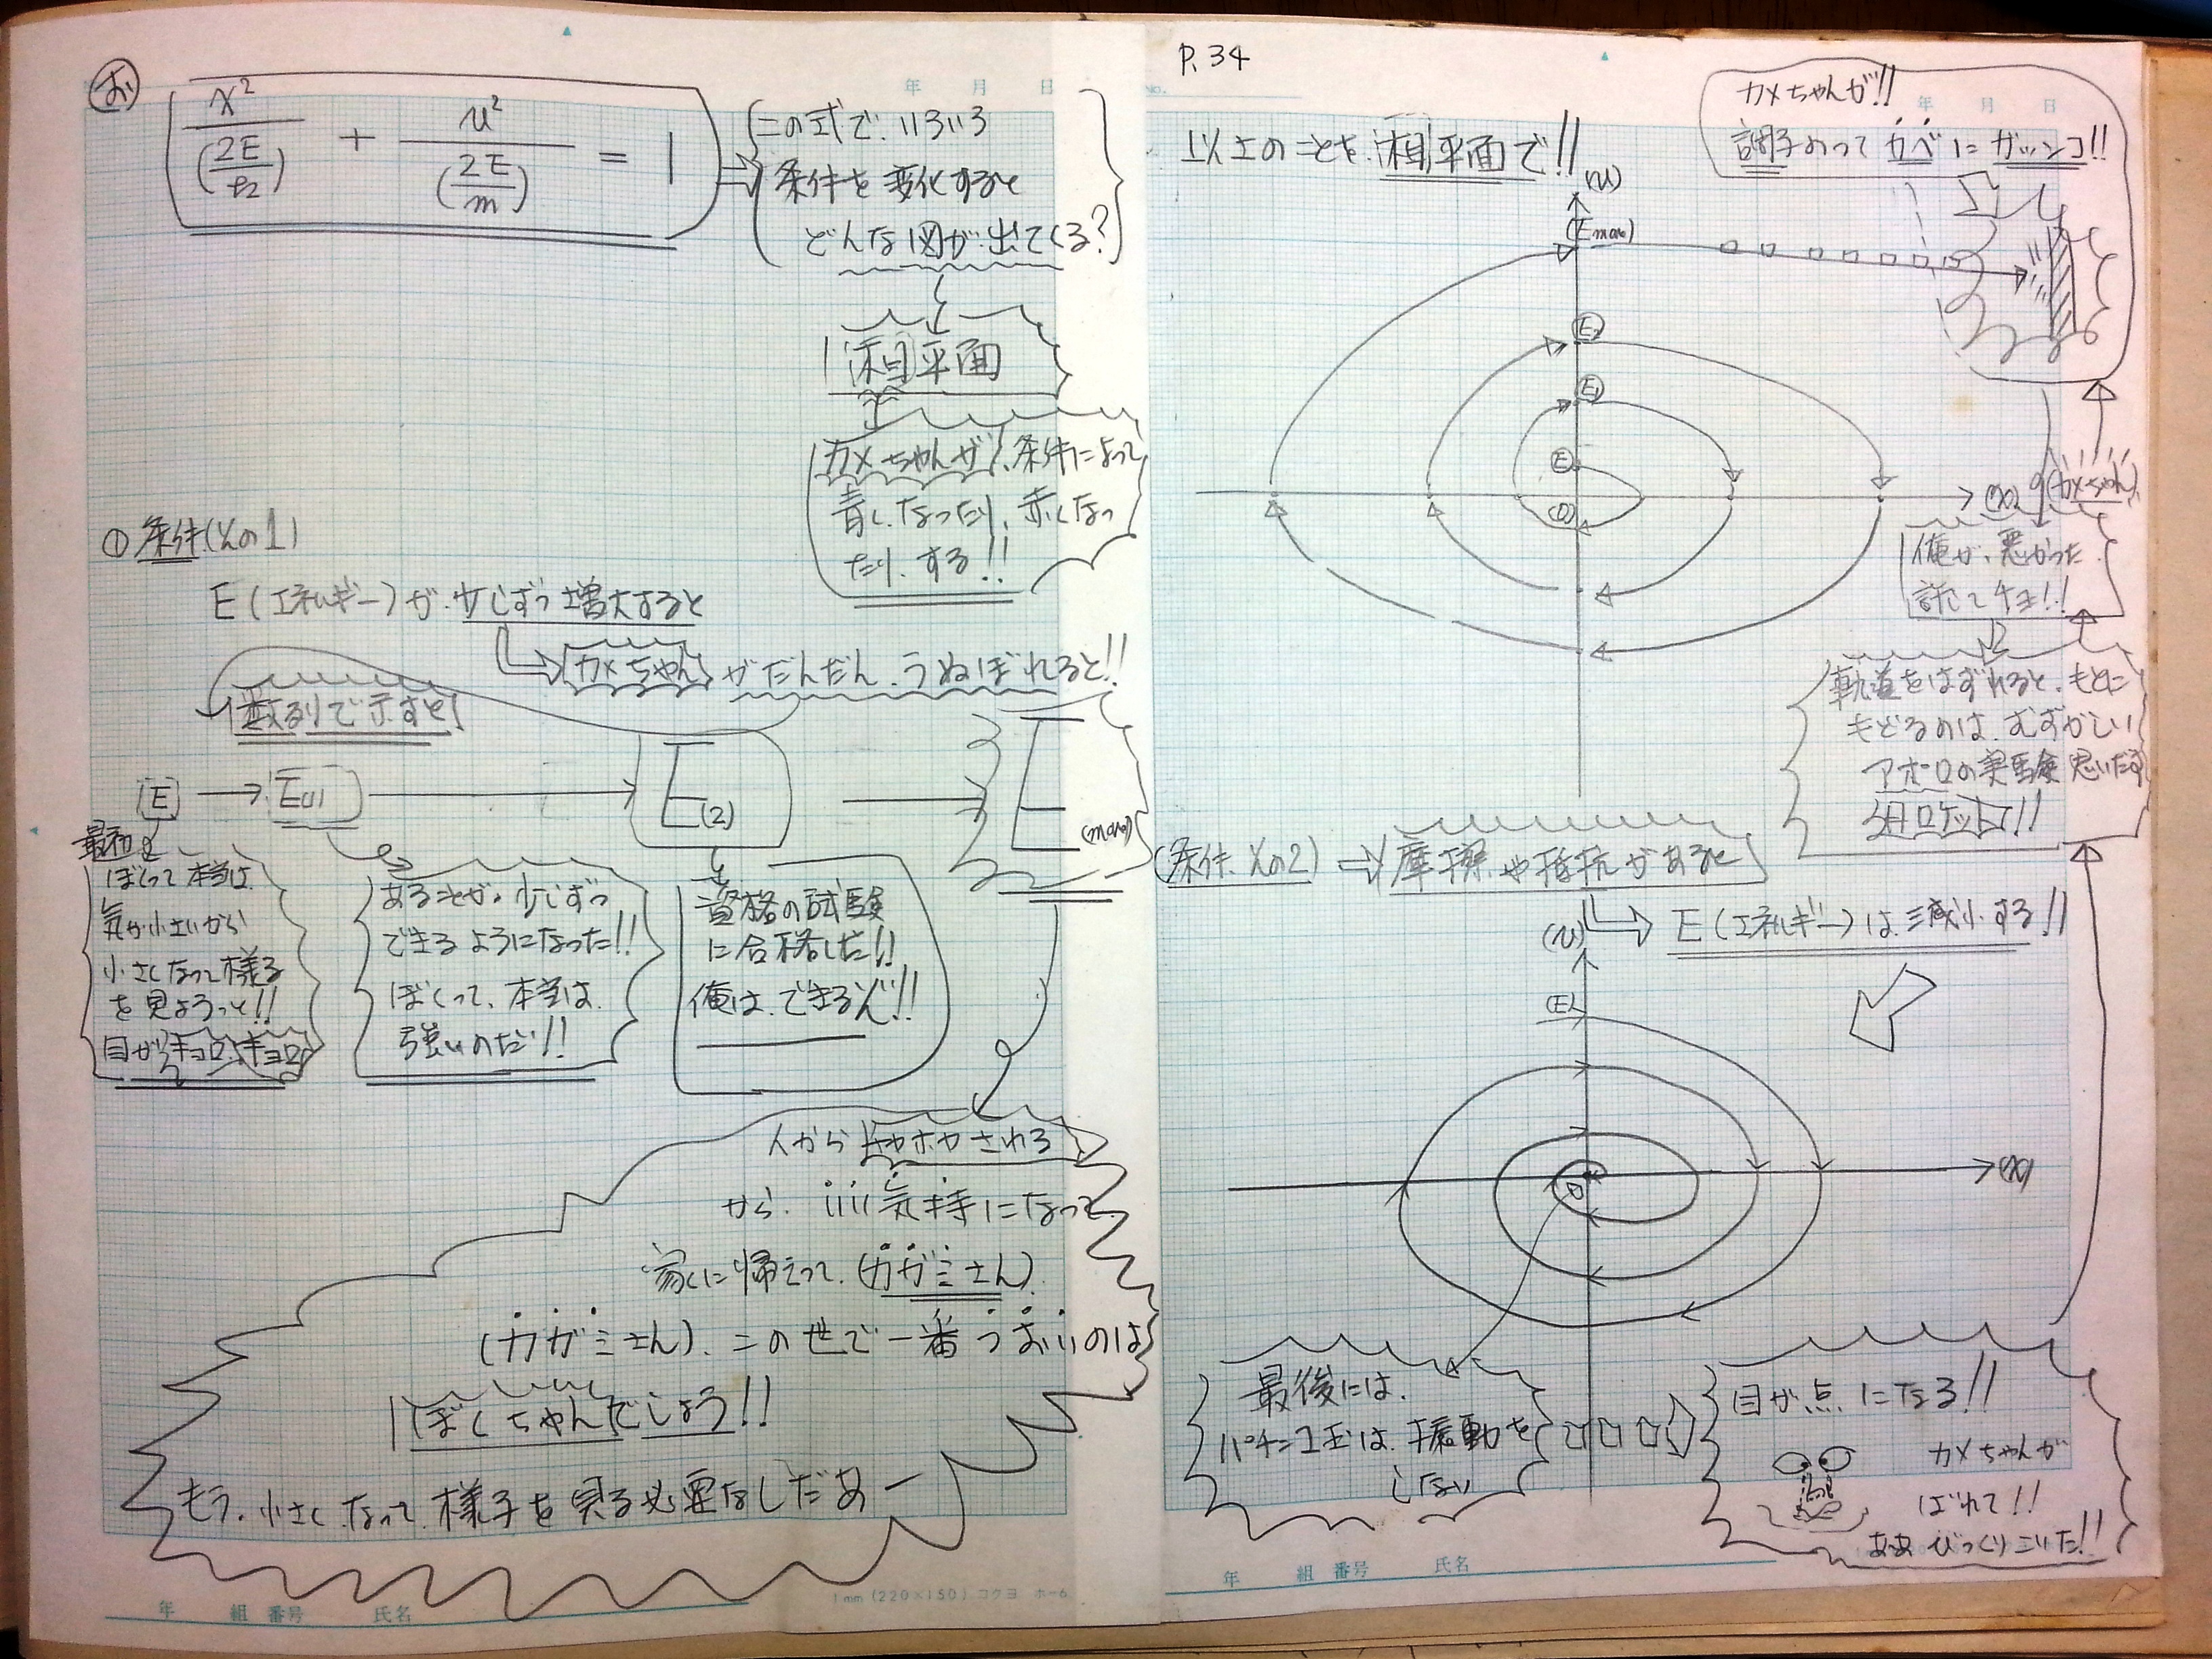 お
x²/(2E/k) + v²/(2E/m) = 1
この式で、いろいろ
条件を変化すると
どんな図が出てくる?
相平面
カメちゃんが、条件によって
青くなったり、赤くなっ
たり、する!!
① 条件(その1)
E(エネルギー)が、少しずつ増大すると
カメちゃんがだんだん、うぬぼれると!!
数列で示すと
E → E(1) → E(2) → E(max)
最初
ぼくって本当は、
気が小さいから
小さくなって様子
を見ようっと!!
目がキョロ、キョロ
あることが、少しずつ
できるようになった!!
ぼくって、本当は、
強いのだ!!
資格の試験
に合格した!!
俺は、できるぞ!!
人からチヤホヤされる
から、いい気持になって
家に帰えって、(カガミさん)、
(カガミさん)、この世で一番つおいのは
ぼくちゃんでしょう!!
もう、小さくなって、様子を見る必要なしだあー
年 組 番号 氏名
1mm (220×150) コクヨ ホ-6
年 月 日
P.34
No.
年 月 日
以上のことを、相平面で!!
カメちゃんが!!
調子のって カベに ガッツンコ!!
(v)
(Emax)
E2
E1
E
(0)
(x)
(カメちゃん)
俺が、悪かった
許してチョ!!
軌道をはずれると、もとに
もどるのは、むずかしい
アポロの実験 思いだす
月ロケット!!
(条件 その2) ⇒ 摩擦や抵抗があると
E(エネルギー)は減少する!!
(v)
(E)
0
(x)
最後には、
パチンコ玉は、振動を
しない
目が点になる!!
カメちゃんが
ばれて!!
ああ びっくりこいた!!
年 組 番号 氏名